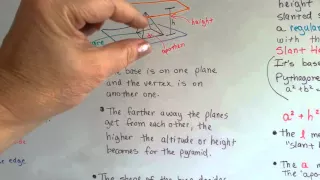 height
h
apothem
a
The base is on one plane
and the vertex is on
another one.
The farther away the planes
get from each other, the
higher the altitude or height
becomes for the pyramid.
The shape of the base decides
height
slanted s
a regular
with th
Slant H
It's base
Pythagore
a² + b²
a² + h²
the l me
"slant
The a m
The "apo
e edge.